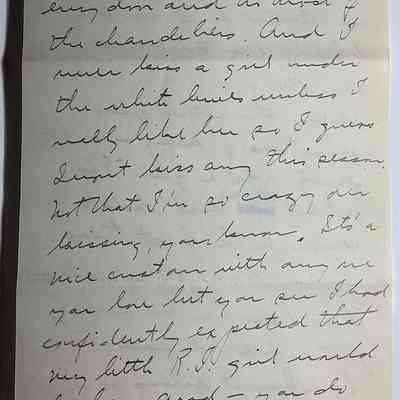 every door and in most of
the chandeliers. And I
never kiss a girl under
the white berries unless I
really like her so I guess
I won't kiss any this season.
Not that I'm so crazy over
kissing, you know. It's a
nice custom with any one
you love but you see I had
confidently expected that
my little R.I. girl would
good - you do